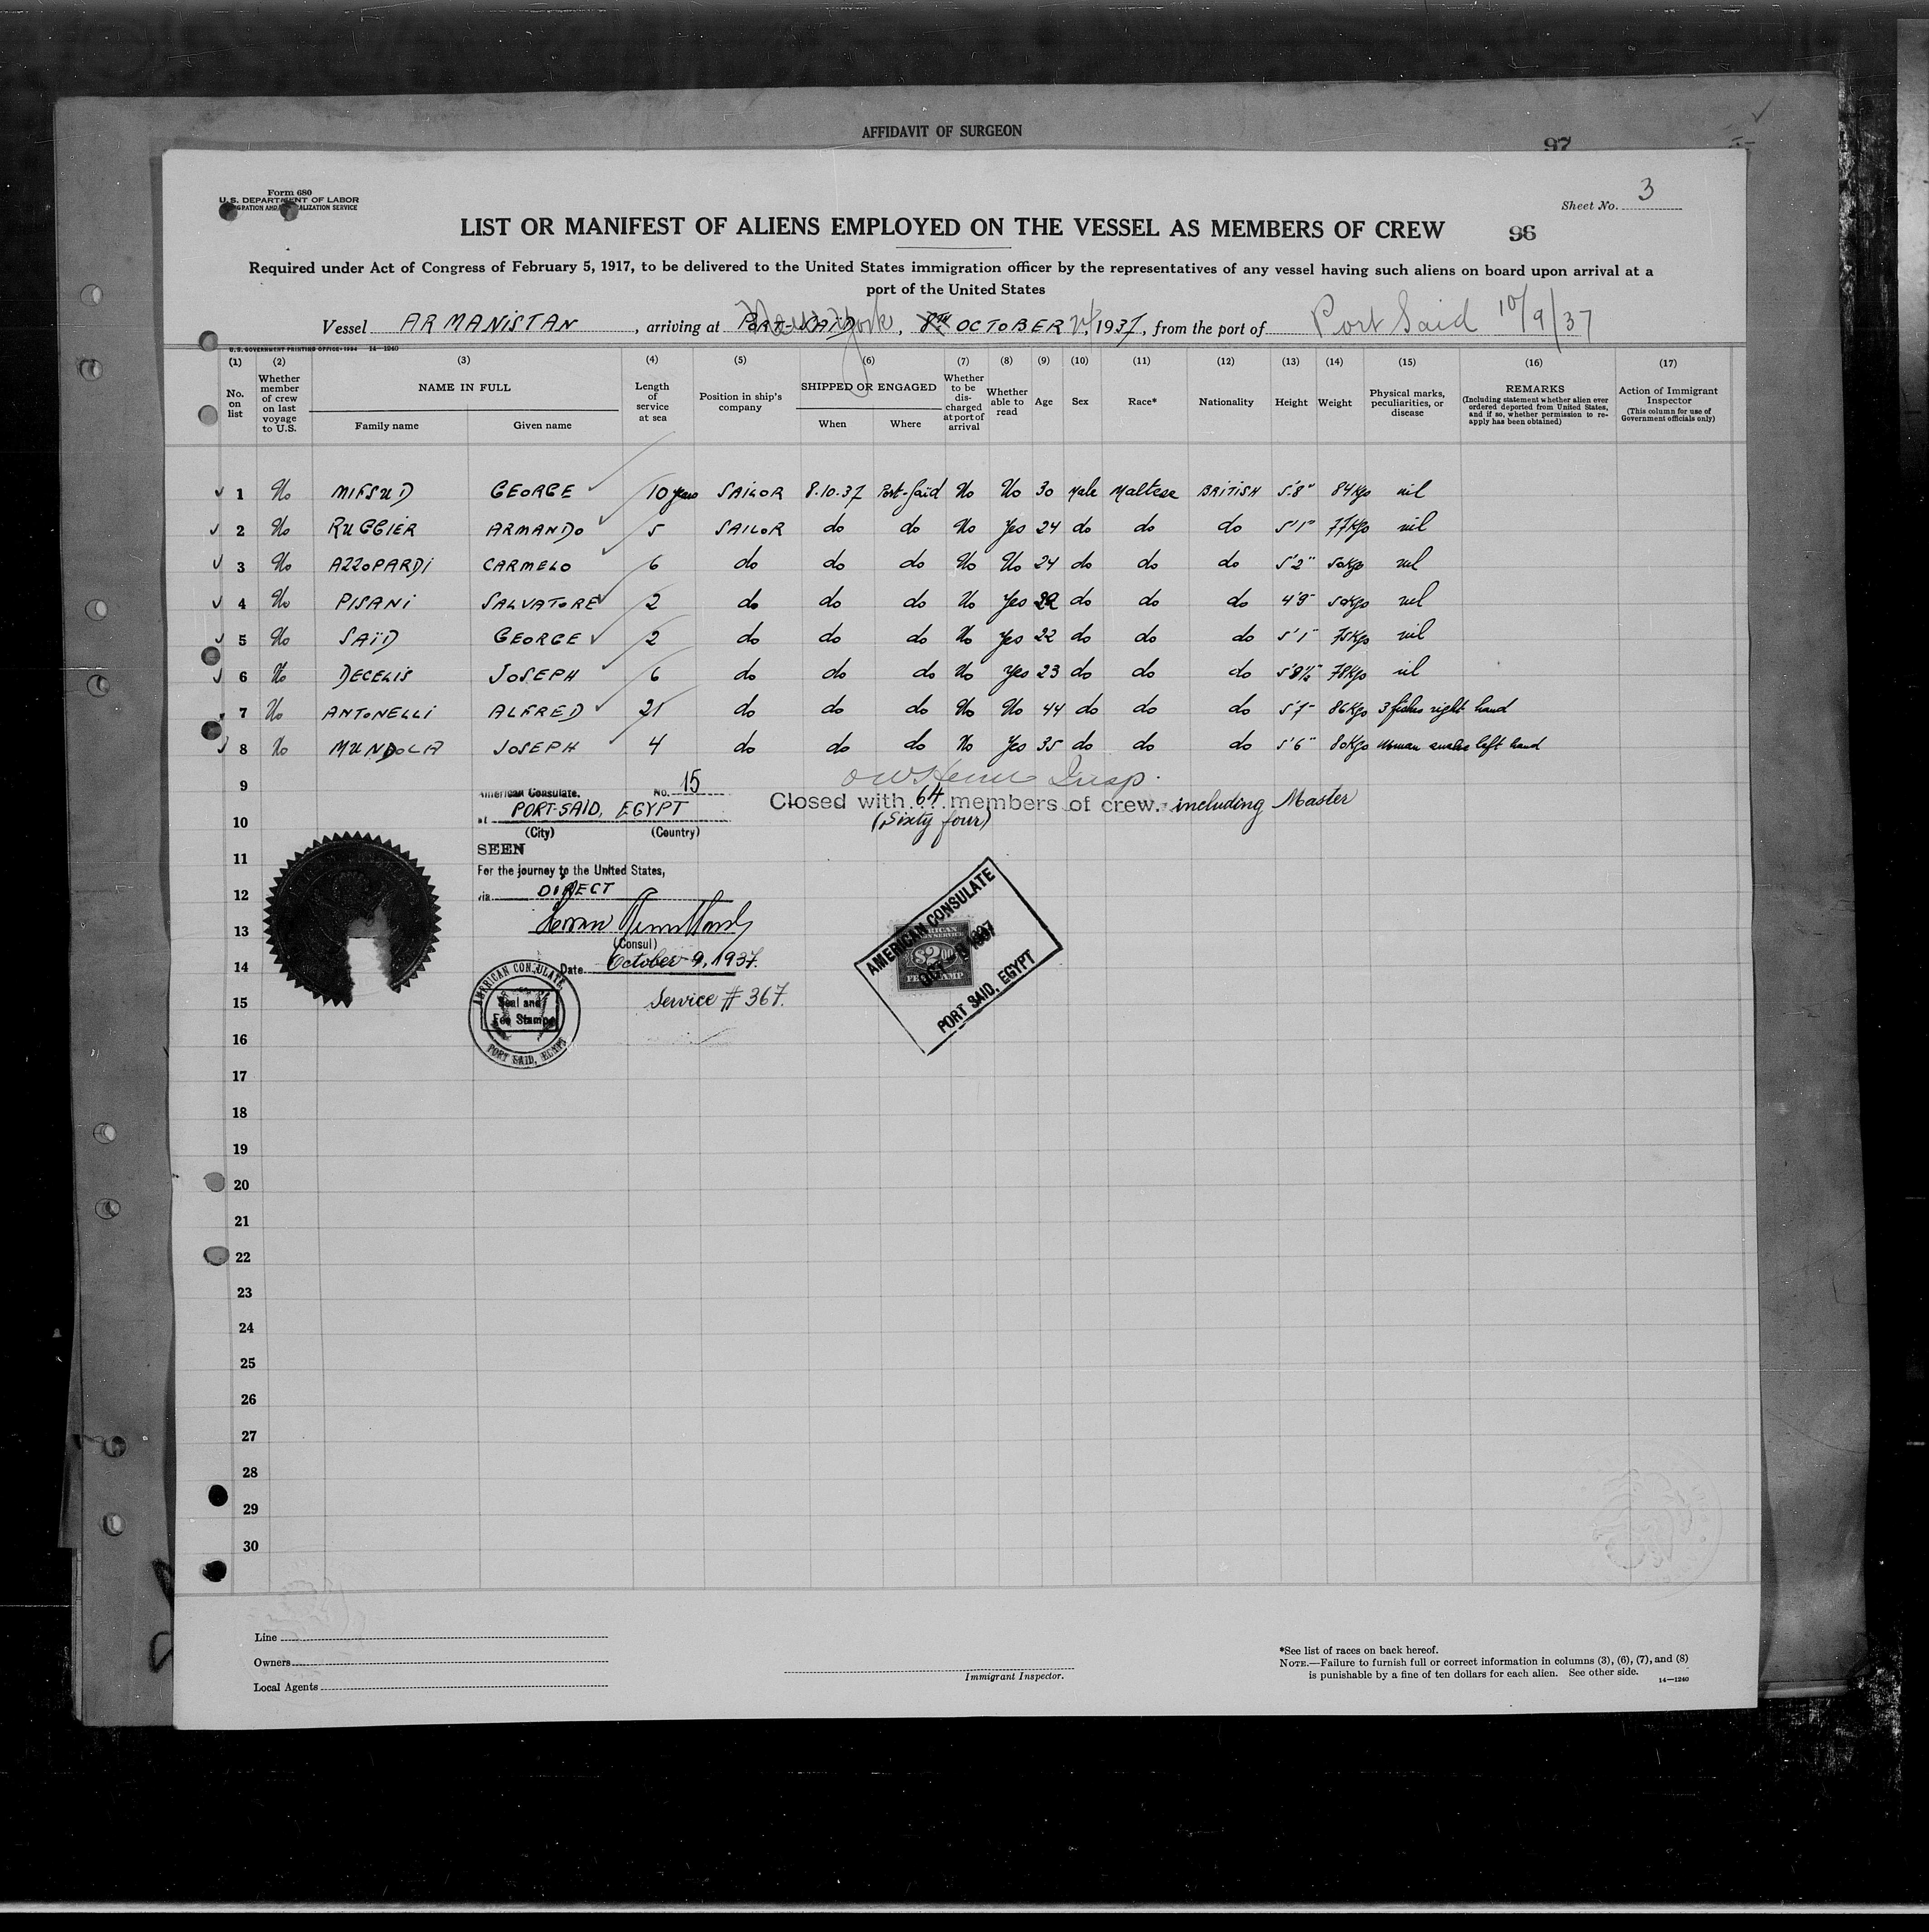 AFFIDAVIT OF SURGEON
97
Form 680
U. S. DEPARTMENT OF LABOR
Sheet No. 3
LIST OR MANIFEST OF ALIENS EMPLOYED ON THE VESSEL AS MEMBERS OF CREW 96
Required under Act of Congress of February 5, 1917, to be delivered to the United States immigration officer by the representatives of any vessel having such aliens on board upon arrival at a
port of the United States
Vessel ARMANISTAN, arriving at PORT-SAID New York, 8TH OCTOBER, 1937, from the port of Port Said 10/9/37
U. S. GOVERNMENT PRINTING OFFICE: 1934 14—1240
(1) (2) (3) (4) (5) (6) (7) (8) (9) (10) (11) (12) (13) (14) (15) (16) (17)
No. on list
Whether member of crew on last voyage to U.S.
NAME IN FULL
Family name Given name
Length of service at sea
Position in ship's company
SHIPPED OR ENGAGED
When Where
Whether to be discharged at port of arrival
Whether able to read
Age Sex Race* Nationality Height Weight
Physical marks, peculiarities, or disease
REMARKS
(Including statement whether alien ever ordered deported from United States, and if so, whether permission to reapply has been obtained)
Action of Immigrant Inspector
(This column for use of Government officials only)
1 No MIFSUD GEORGE 10 years SAILOR 8.10.37 Port-Saïd No No 30 Male Maltese BRITISH 5'8" 84Kgo nil
2 No RUGGIER ARMANDO 5 SAILOR do do No Yes 24 do do do 5'1" 77Kgo nil
3 No AZZOPARDI CARMELO 6 do do do No No 24 do do do 5'2" 50Kgo nil
4 No PISANI SALVATORE 2 do do do No Yes do do do 4'9" 50Kgo nil
5 No SAÏD GEORGE 2 do do do No Yes 22 do do do 5'1" 75Kgo nil
6 No DECELIS JOSEPH 6 do do do No Yes 23 do do do 5'8½" 78Kgo nil
7 No ANTONELLI ALFRED 21 do do do No No 44 do do do 5'7" 86Kgo 3 right hand
8 No MUNDOLA JOSEPH 4 do do do No Yes 35 do do do 5'6" 80Kgo Woman left hand
9
Insp.
American Consulate. No. 15
Closed with 64 members of crew. including Master
(Sixty four)
at PORT-SAID, EGYPT
10
(City) (Country)
SEEN
11
For the journey to the United States,
12
via DIRECT
13
(Consul)
14
Date October 9, 1937.
15
Service # 367.
AMERICAN CONSULATE
Seal and
Fee Stamp
PORT SAID, EGYPT
AMERICAN CONSULATE
$2.00
FEE STAMP
OCT 9 1937
PORT SAID, EGYPT
16
17
18
19
20
21
22
23
24
25
26
27
28
29
30
Line
Owners
Local Agents
Immigrant Inspector.
*See list of races on back hereof.
NOTE.—Failure to furnish full or correct information in columns (3), (6), (7), and (8)
is punishable by a fine of ten dollars for each alien. See other side.
14—1240